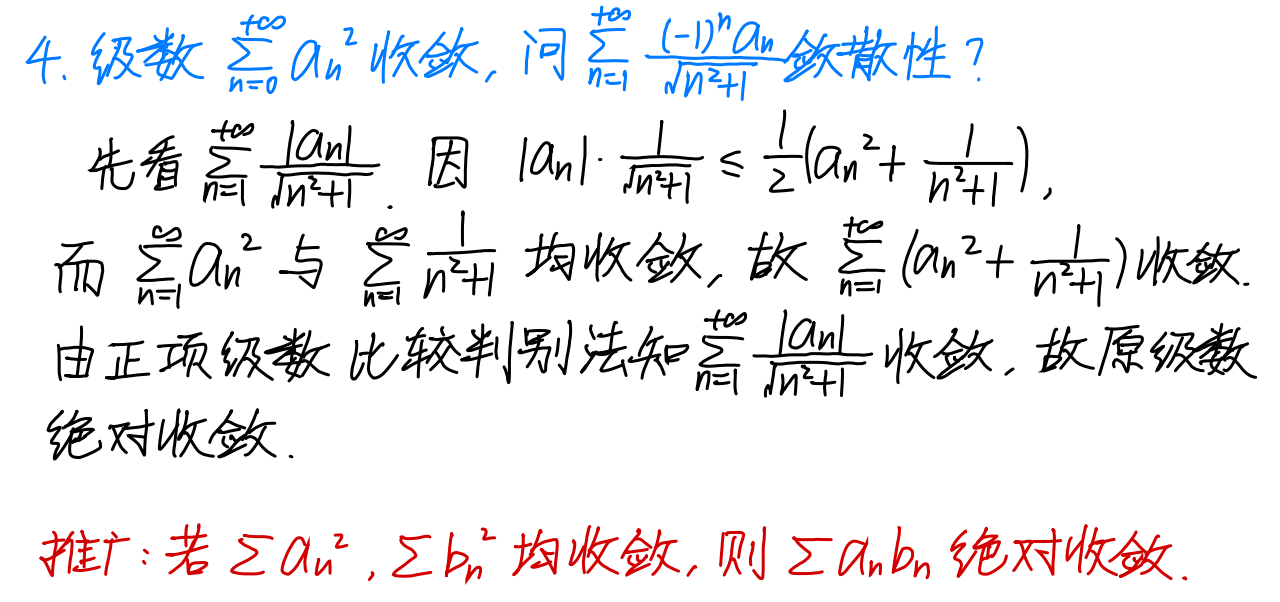 4. 级数 $\sum_{n=0}^{+\infty} a_n^2$ 收敛, 问 $\sum_{n=1}^{+\infty} \frac{(-1)^n a_n}{\sqrt{n^2+1}}$ 敛散性?
先看 $\sum_{n=1}^{+\infty} \frac{|a_n|}{\sqrt{n^2+1}}$. 因 $|a_n| \cdot \frac{1}{\sqrt{n^2+1}} \leq \frac{1}{2}(a_n^2 + \frac{1}{n^2+1})$,
而 $\sum_{n=1}^{\infty} a_n^2$ 与 $\sum_{n=1}^{\infty} \frac{1}{n^2+1}$ 均收敛, 故 $\sum_{n=1}^{+\infty} (a_n^2 + \frac{1}{n^2+1})$ 收敛.
由正项级数比较判别法知 $\sum_{n=1}^{+\infty} \frac{|a_n|}{\sqrt{n^2+1}}$ 收敛, 故原级数
绝对收敛.
推广: 若 $\sum a_n^2$, $\sum b_n^2$ 均收敛, 则 $\sum a_n b_n$ 绝对收敛.